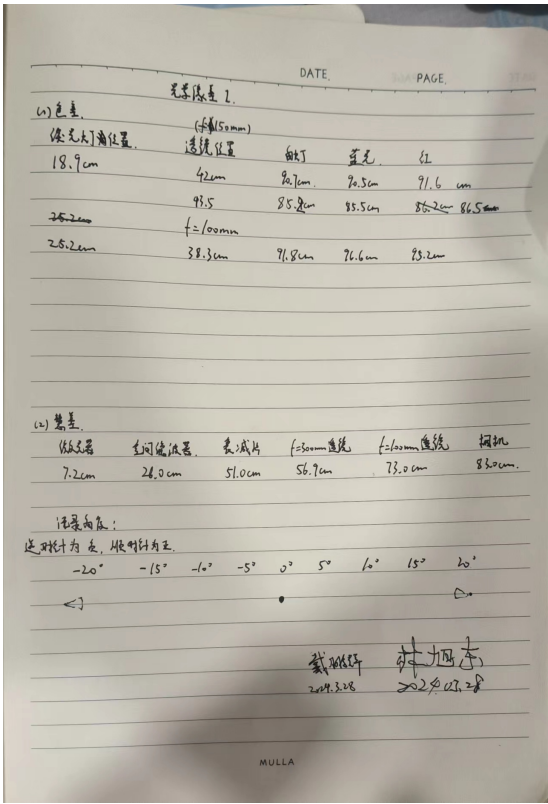 DATE. PAGE.
光学像差 1.
(1) 色差.
(f=150mm)
透镜位置 白灯 蓝光 红
18.9cm 42cm 90.7cm. 90.5cm 91.6 cm
93.5 85.2cm 85.5cm 86.2cm 86.5cm
25.2cm f=100mm
25.2cm 38.3cm 91.8cm 96.6cm 95.2cm
(2) 彗差.
激光器 空间滤波器. 衰减片 f=300mm透镜 f=100mm透镜 相机
7.2cm 26.0cm 51.0cm 56.9cm 73.0cm 83.0cm.
角度:
逆时针为负, 顺时针为正.
-20° -15° -10° -5° 0° 5° 10° 15° 20°
2024.3.28 2024.03.28
MULLA